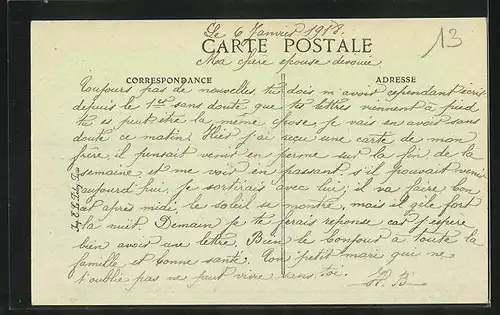 Le 6 Janvier 1918.
13
CARTE POSTALE
Ma chère epouse devouée
CORRESPONDANCE
ADRESSE
Toujours pas de nouvelles, tu dois m'avoir cependant écrit
depuis le 1er sans doute que tes lettres viennent à pied
tu es peut être la même chose, je vais en avoir sans
doute ce matin. Hier j'ai reçu une carte de mon
frère, il pensait venir en perme sur la fin de la
semaine et me voir en passant, s'il pouvait venir
aujourd'hui, je sortirais avec lui; il va faire bon
cet après midi le soleil se montre, mais il gèle fort
la nuit. Demain je te ferais reponse car j'espère
bien avoir une lettre. Bien le bonjour à toute la
famille et bonne santé. Ton petit mari qui ne
t'oublie pas ne peut vivre sans toi.